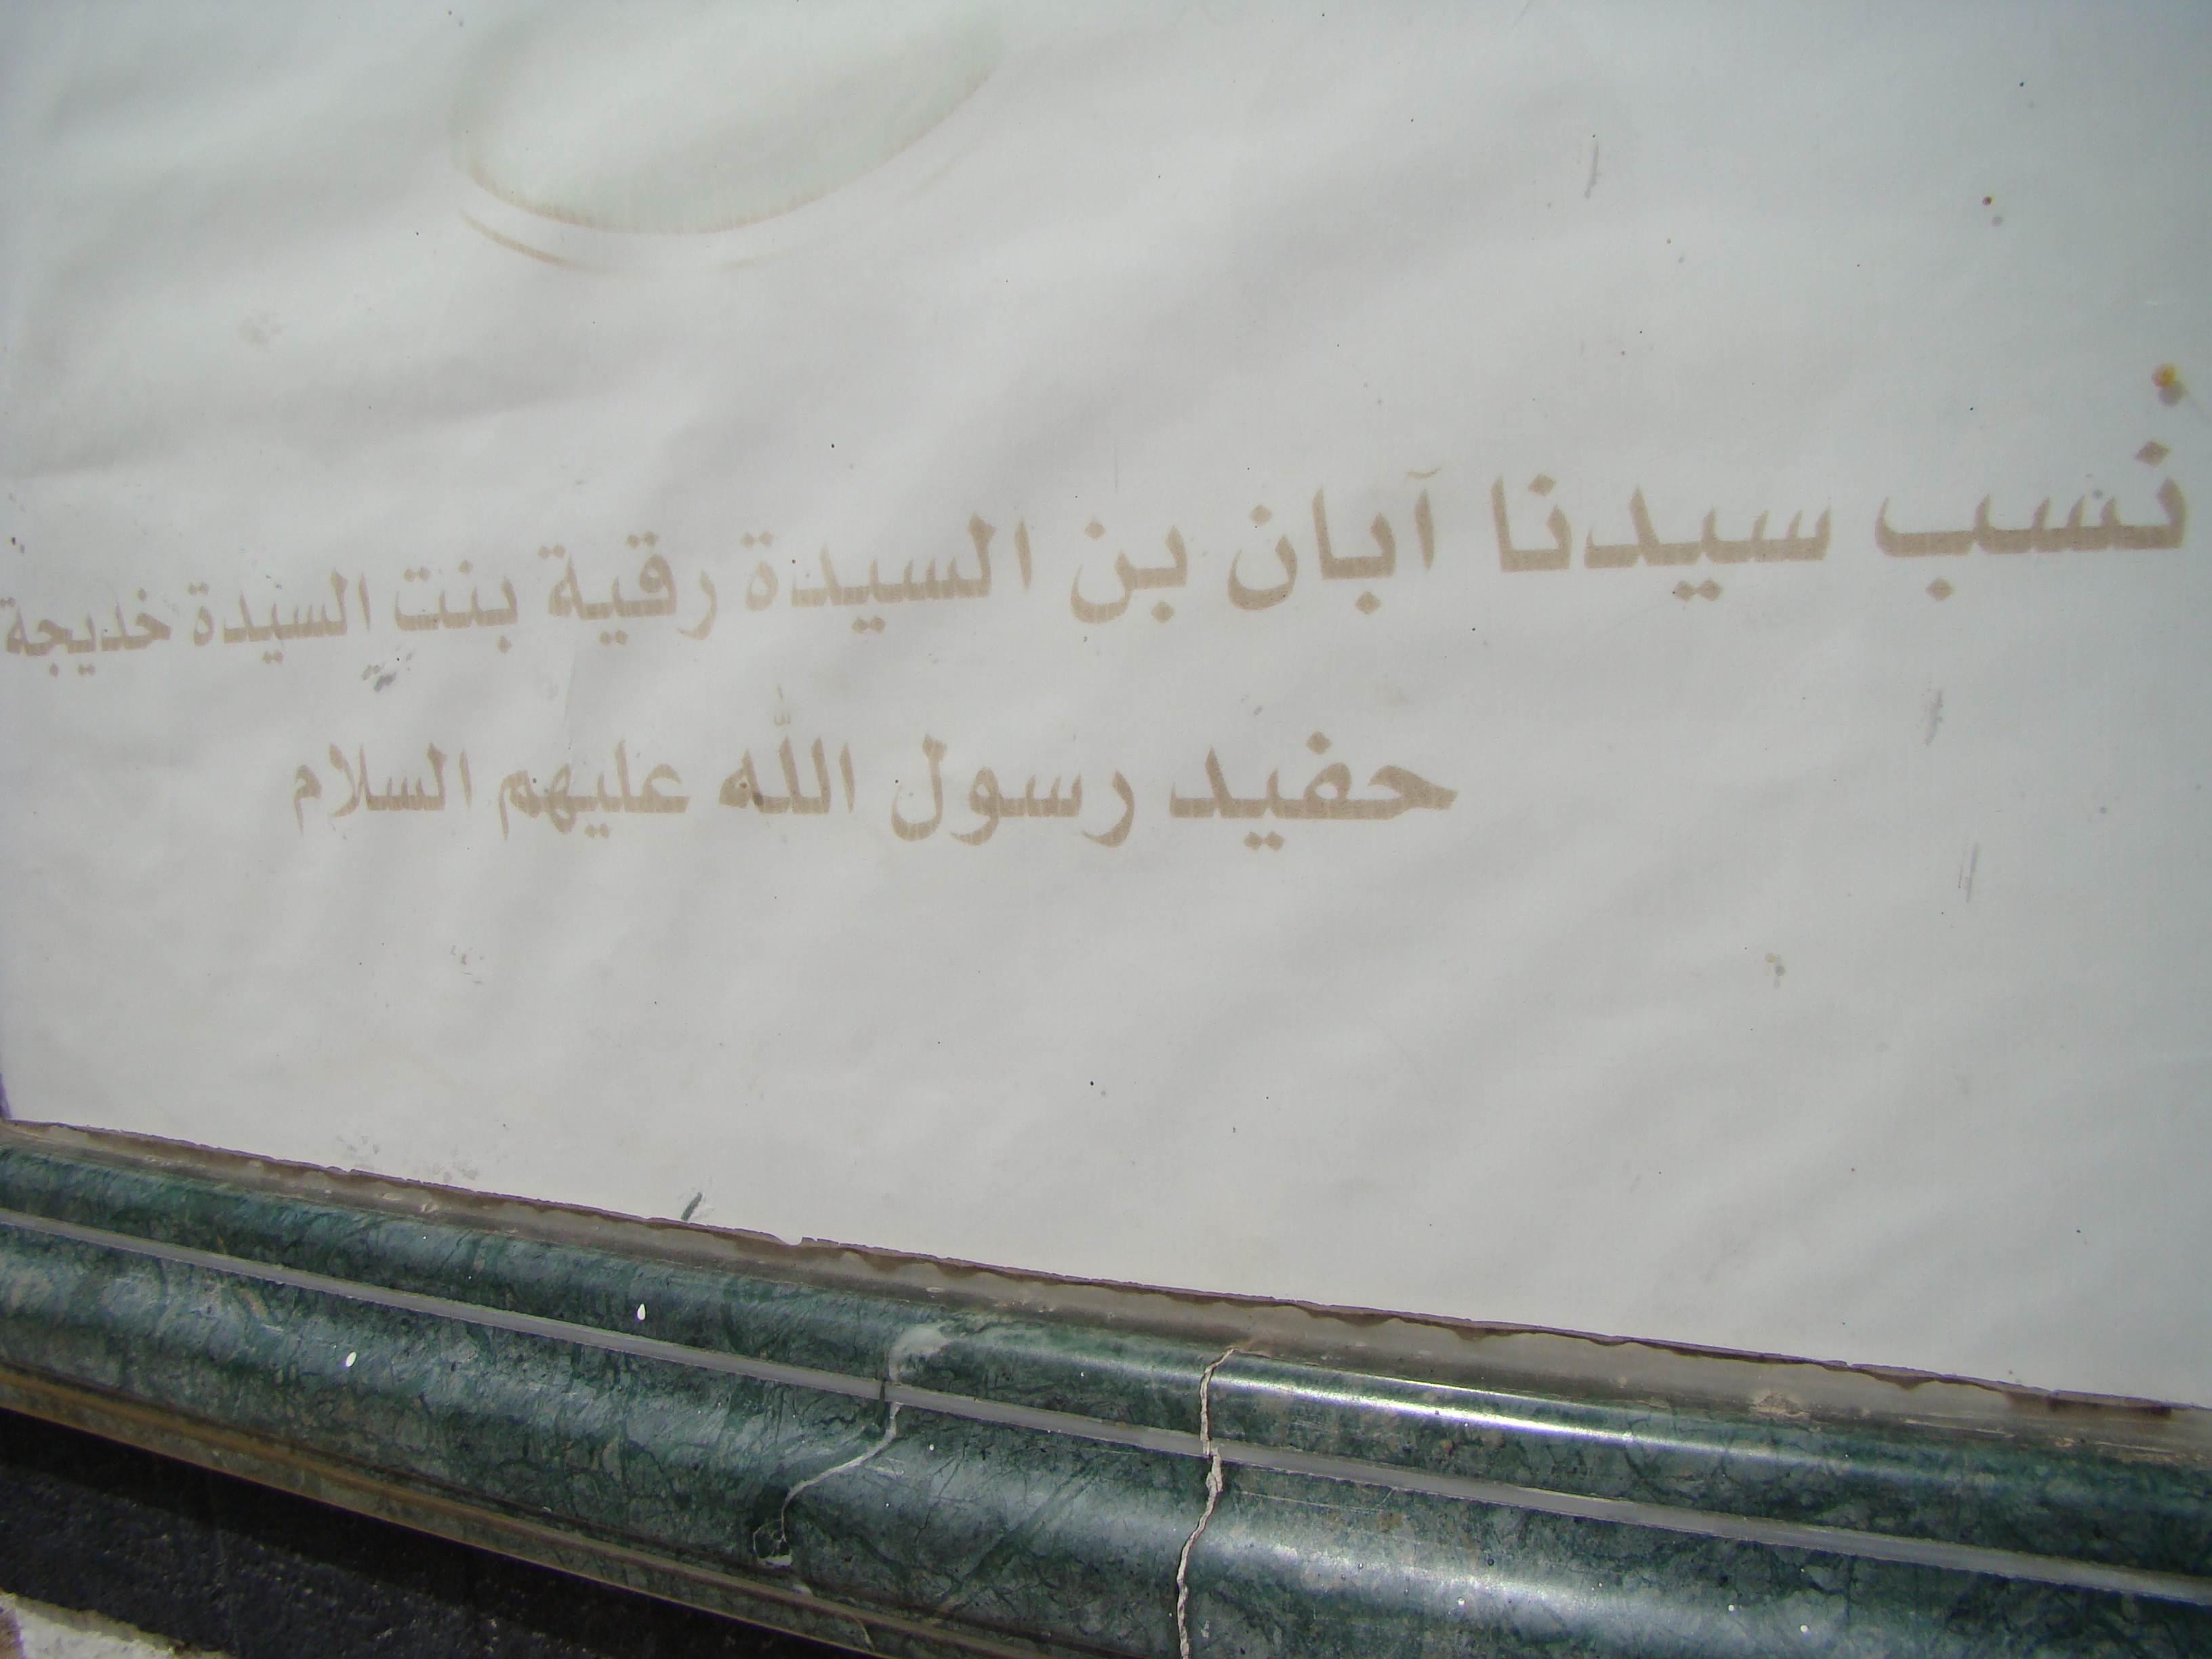 نسب سيدنا آبان بن السيدة رقية بنت السيدة خديجة
حفيد رسول الله عليهم السلام